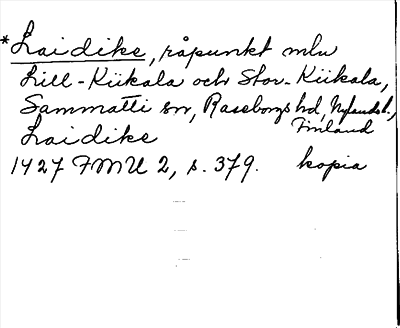 *Laidike, råpunkt mln
Lill-Kiikala och Stor-Kiikala,
Sammatti sn, Raseborgs hd, Nylands l.,
Finland
Laidike
1427 FMU 2, s. 379. kopia